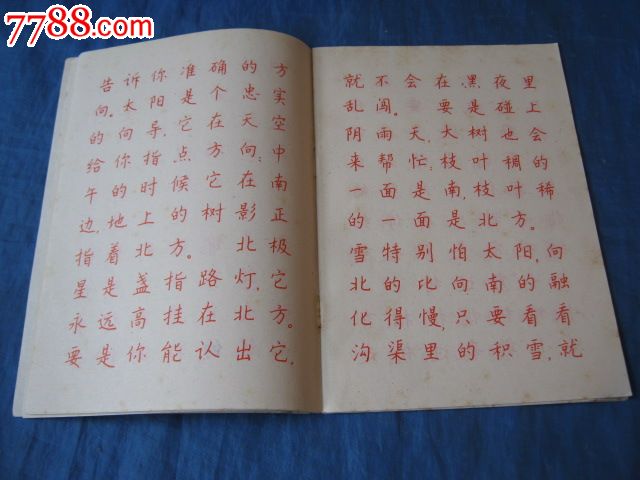 7788.com
告诉你准确的方
向。太阳是个忠实
的向导，它在天空
给你指点方向：中
午的时候它在南
边，地上的树影正
指着北方。 北极
星是盏指路灯，它
永远高挂在北方。
要是你能认出它，
就不会在黑夜里
乱闯。 要是碰上
阴雨天，大树也会
来帮忙：枝叶稠的
一面是南，枝叶稀
的一面是北方。
雪特别怕太阳，向
北的比向南的融
化得慢，只要看看
沟渠里的积雪，就